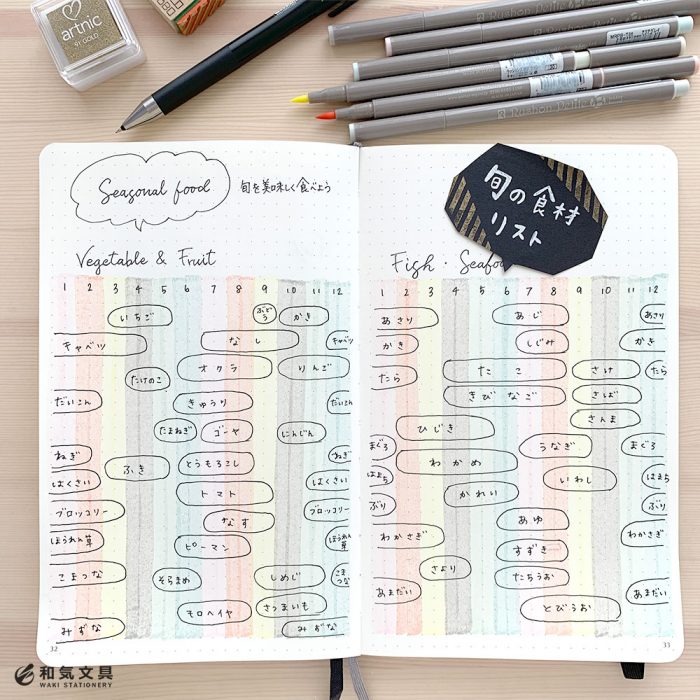 artnic
91 GOLD
Seasonal food
旬を美味しく食べよう
旬の食材
リスト
Vegetable & Fruit
1 2 3 4 5 6 7 8 9 10 11 12
いちご ぶどう かき
キャベツ なし キャベツ
オクラ りんご
たけのこ
だいこん きゅうり だいこん
たまねぎ ゴーヤ にんじん
ねぎ ふき とうもろこし ねぎ
はくさい トマト はくさい
ブロッコリー なす ブロッコリー
ほうれん草 ピーマン ほうれん草
こまつな そらまめ しめじ こまつな
モロヘイヤ さつまいも
みずな みずな
32
Fish・Seafoo
1 2 3 4 5 6 7 8 9 10 11 12
あさり あじ あさり
かき しじみ かき
たら たこ さけ たら
きびなご さんま
ひじき さんま
まぐろ うなぎ まぐろ
わかめ
はまち いわし はまち
かれい
ぶり あゆ ぶり
わかさぎ すずき わかさぎ
さより たちうお
あまだい あまだい
とびうお
33
和気文具
WAKI STATIONERY